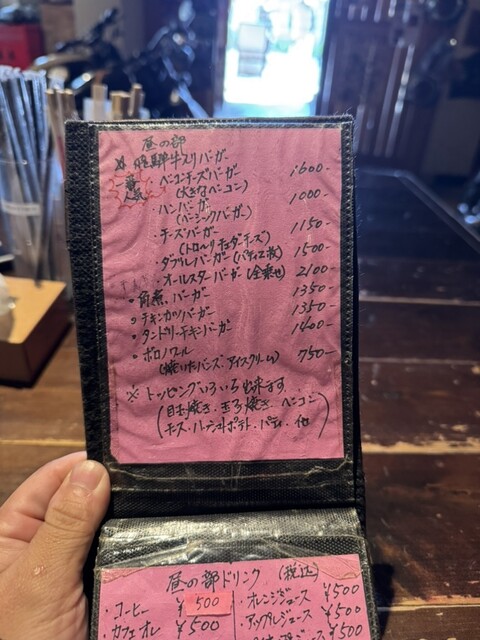 昼の部
※飛騨牛入りバーガー
一番人気
・ベーコンチーズバーガー 1600-
(大きなベーコン)
・ハンバーガー 1000-
(ベーシックバーガー)
・チーズバーガー 1150-
(トロ〜リチェダーチーズ)
・ダブルバーガー(パティ2枚) 1500-
・オールスターバーガー(全乗せ) 2100-
・角煮バーガー 1350-
・チキンカツバーガー 1350-
・タンドリーチキンバーガー 1400-
・ボロノワール
(焼いたバンズ、アイスクリーム) 750-
※トッピングいろいろ出来ます
(目玉焼き・玉子焼き・ベーコン
チーズ・ハッシュドポテト・パティ・他)
昼の部ドリンク(税込)
・コーヒー ¥500
・カフェオレ ¥500
・オレンジジュース ¥500
・アップルジュース ¥500